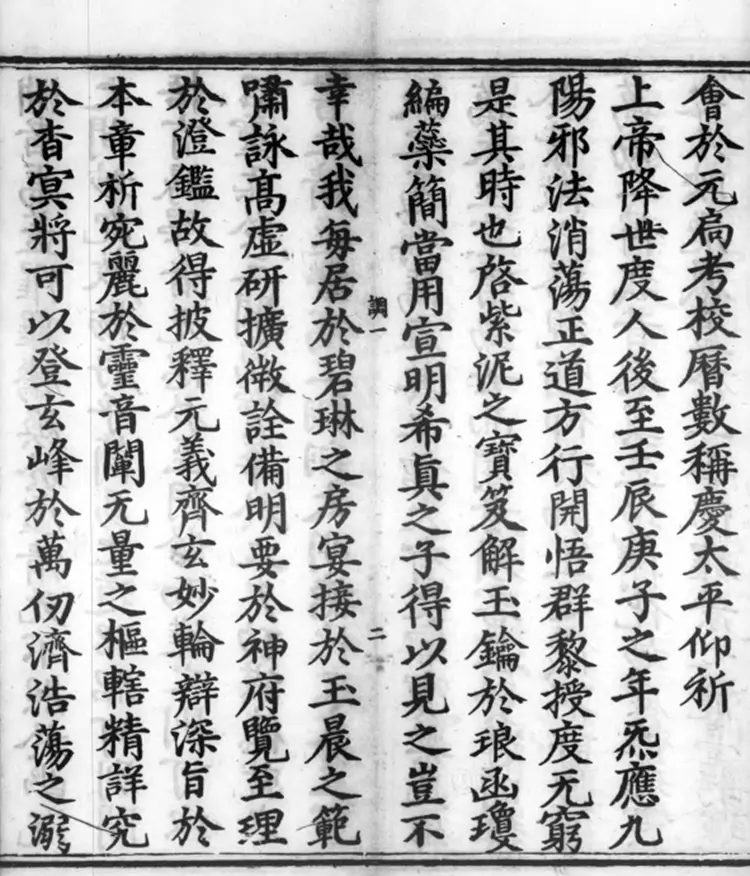 會於元高考校曆數稱慶太平仰祈
上帝降世度人後至壬辰庚子之年炁應九
陽邪法消蕩正道方行開悟群黎授度无窮
是其時也啓紫泥之寶笈解玉鑰於琅函瓊
編蘂簡當用宣明希眞之子得以見之豈不
調一
二
幸哉我每居於碧琳之房宴接於玉晨之範
嘯詠高虛研擴微詮備明要於神府覽至理
於澄鑑故得披釋元義齊玄妙輪辯深旨於
本章析宛麗於靈音闡无量之樞轄精詳究
於杳冥將可以登玄峰於萬仞濟浩蕩之溺